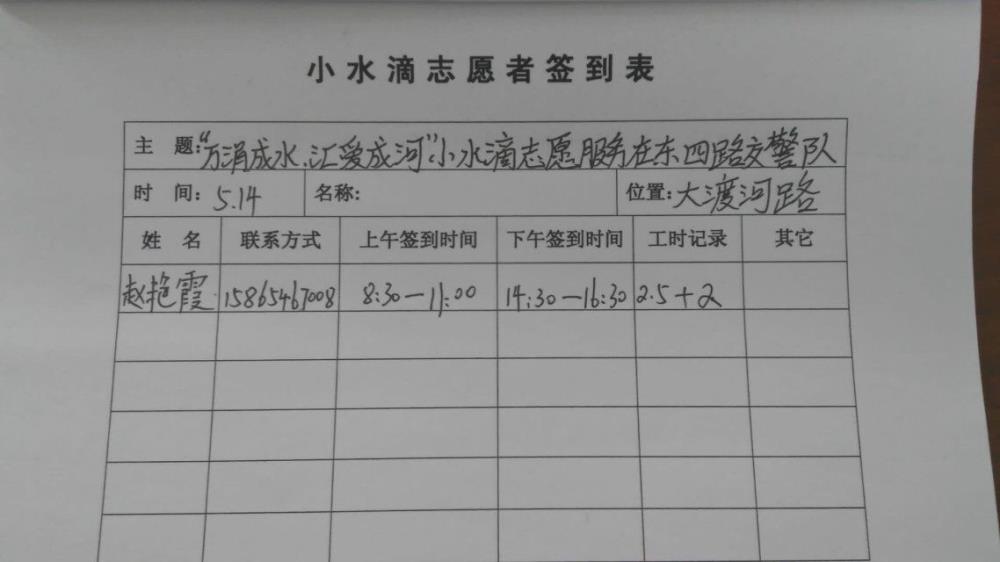 小水滴志愿者签到表
主 题:“万涓成水.汇爱成河”小水滴志愿服务在东四路交警队
时 间: 5.14 名称: 位置: 大渡河路
姓 名 联系方式 上午签到时间 下午签到时间 工时记录 其它
赵艳霞 15865467008 8:30—11:00 14:30—16:30 2.5+2